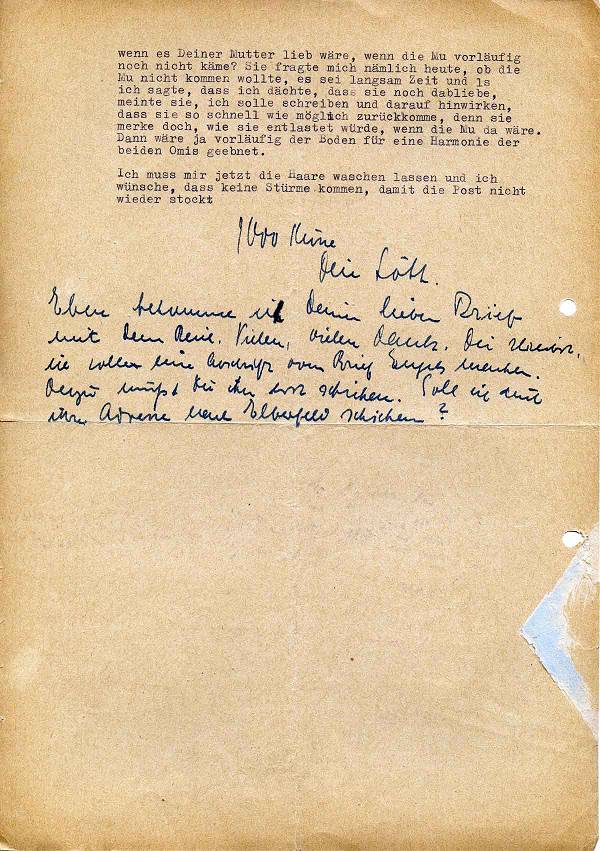 wenn es Deiner Mutter lieb wäre, wenn die Mu vorläufig
noch nicht käme? Sie fragte mich nämlich heute, ob die
Mu nicht kommen wollte, es sei langsam Zeit und ls
ich sagte, dass ich dächte, dass sie noch dabliebe,
meinte sie, ich solle schreiben und darauf hinwirken,
dass sie so schnell wie möglich zurückkomme, denn sie
merke doch, wie sie entlastet würde, wenn die Mu da wäre.
Dann wäre ja vorläufig der Boden für eine Harmonie der
beiden Omis geebnet.
Ich muss mir jetzt die Haare waschen lassen und ich
wünsche, dass keine Stürme kommen, damit die Post nicht
wieder stockt
1000 Küsse
Dein
Eben bekomme ich Deinen lieben Brief
mit dem Vielen, vielen Dank. Du
sie sollen eine Abschrift vom Brief machen.
Dazu mußt Du ihm erst schreiben. Soll ich
ihre Adresse nach Elberfeld schicken?